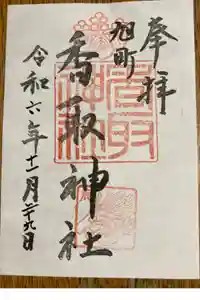 奉拝
旭町
香取神社
令和六年十一月二十九日